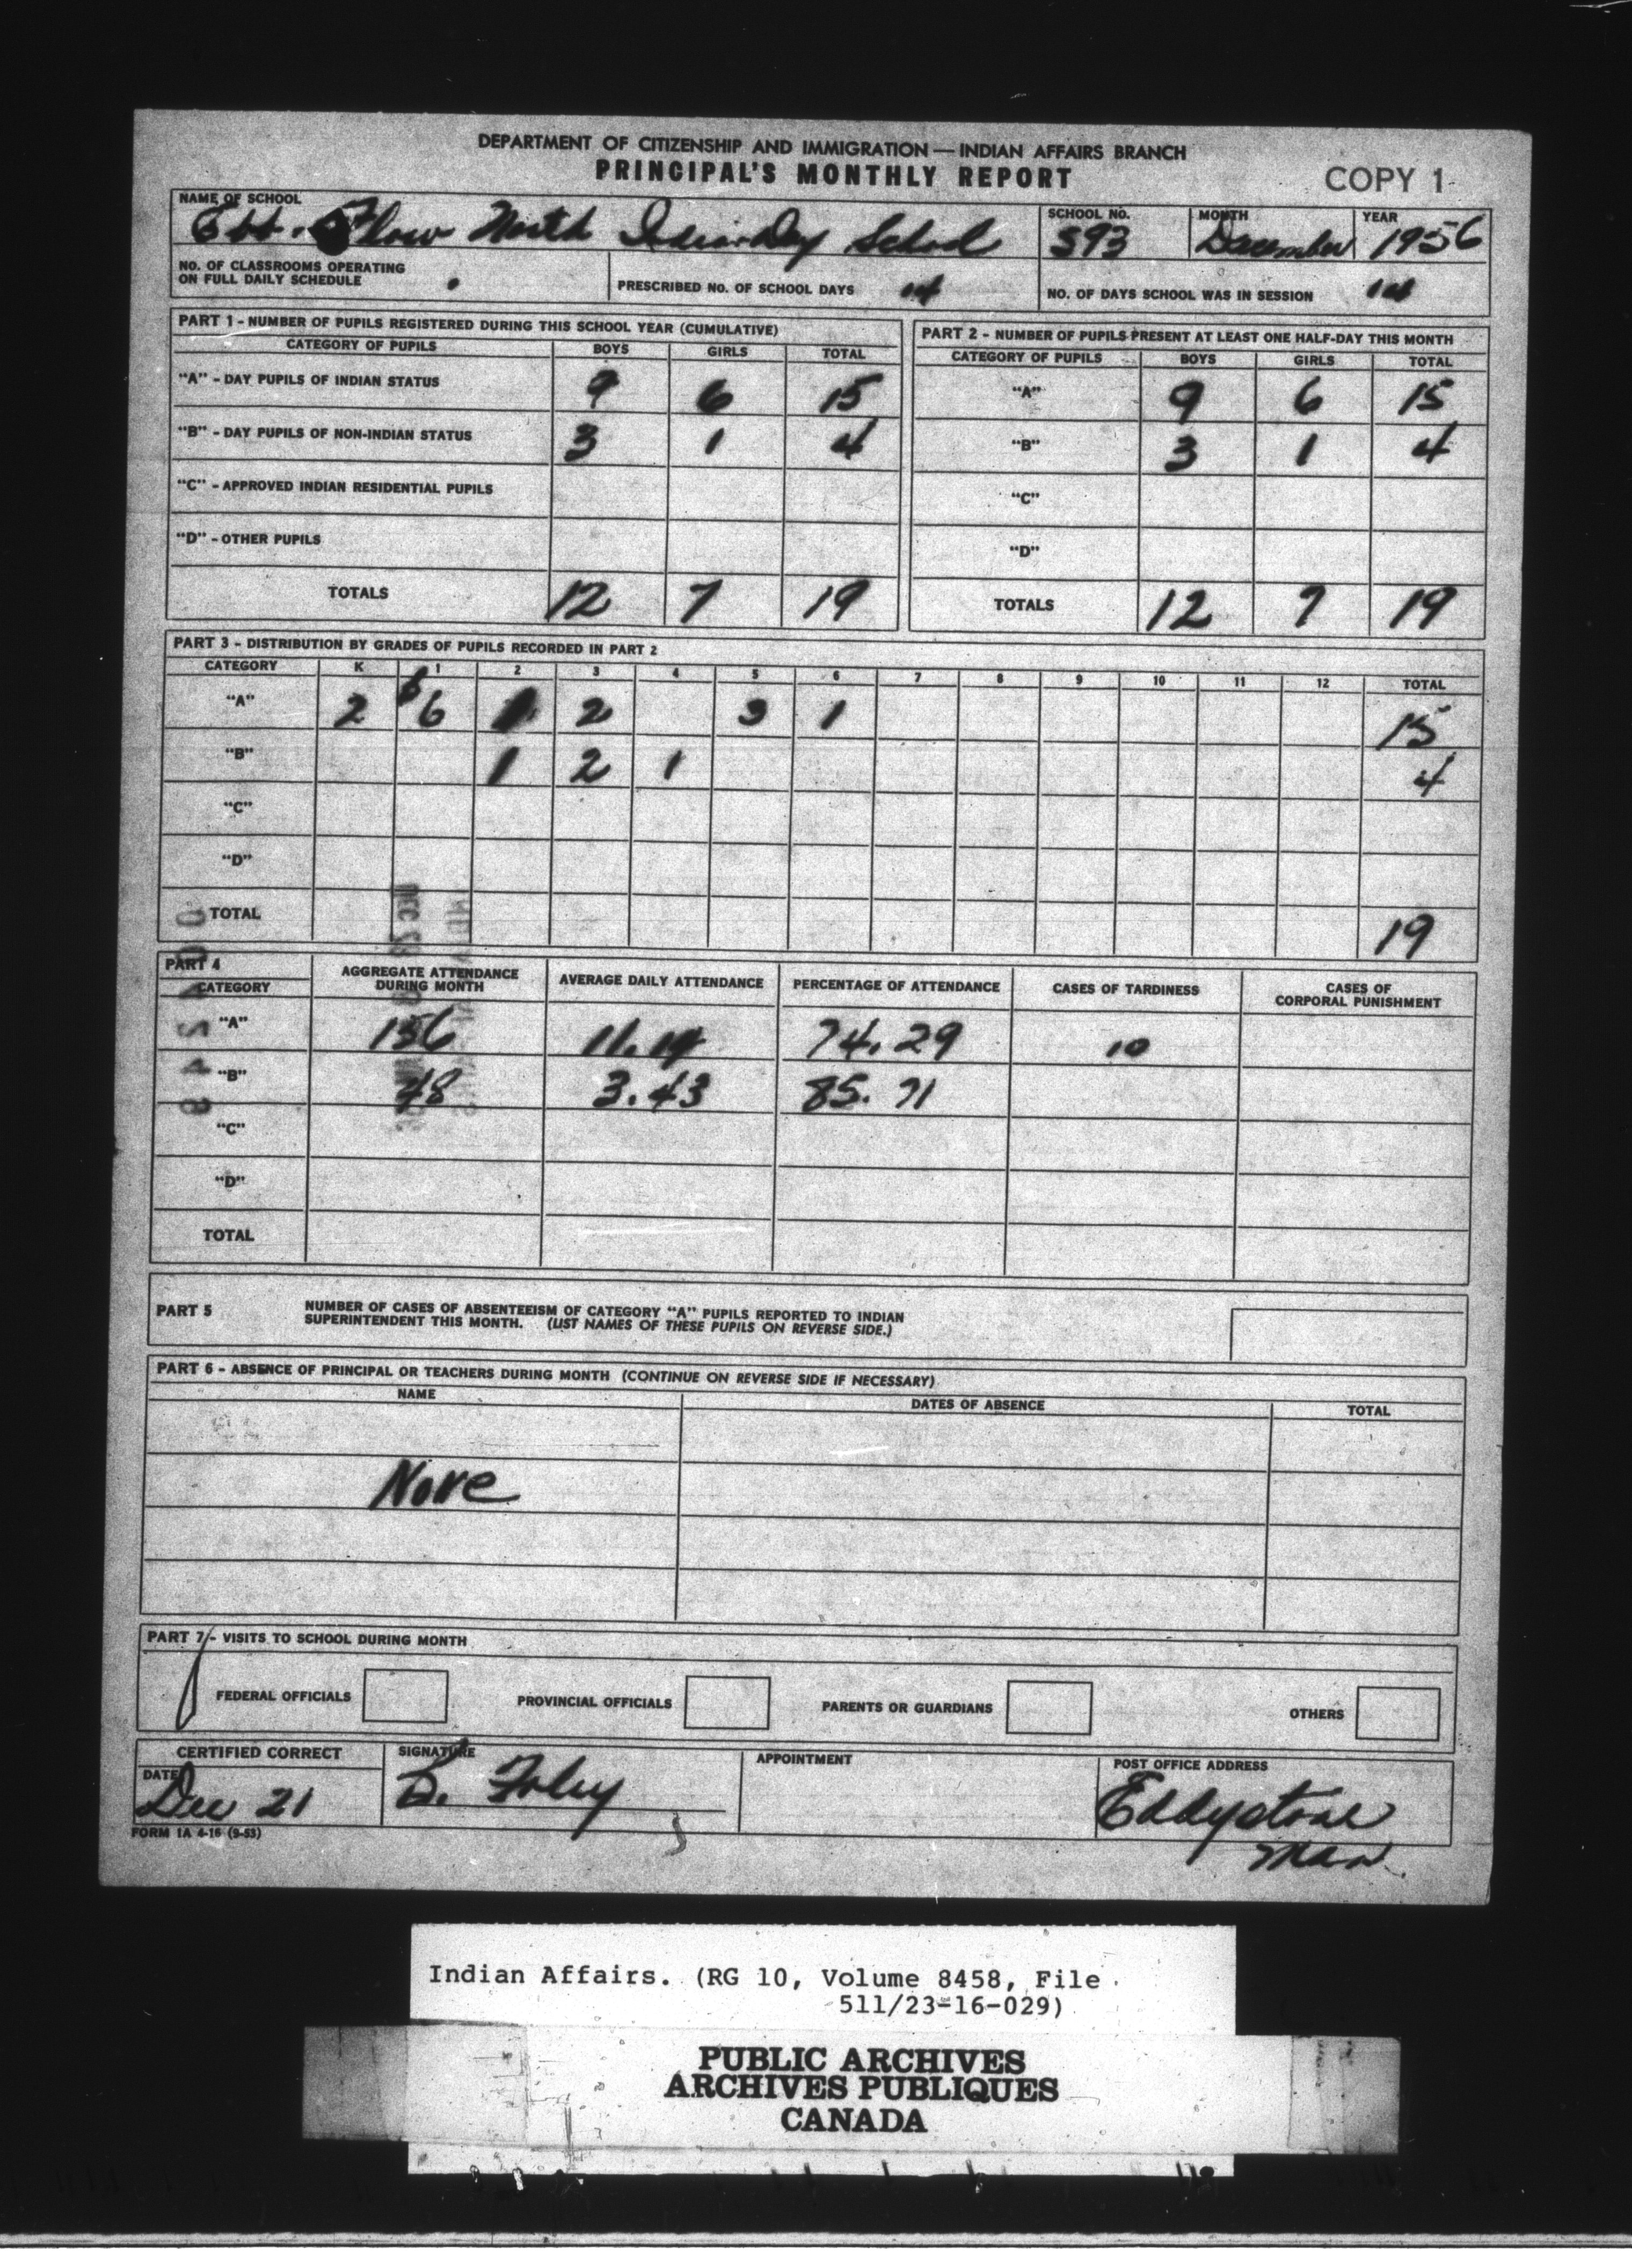 DEPARTMENT OF CITIZENSHIP AND IMMIGRATION — INDIAN AFFAIRS BRANCH
PRINCIPAL'S MONTHLY REPORT
COPY 1
NAME OF SCHOOL SCHOOL NO. MONTH YEAR
Ebb. Flow North Indian Day School 593 December 1956
NO. OF CLASSROOMS OPERATING
ON FULL DAILY SCHEDULE
PRESCRIBED NO. OF SCHOOL DAYS 14
NO. OF DAYS SCHOOL WAS IN SESSION 14
PART 1 - NUMBER OF PUPILS REGISTERED DURING THIS SCHOOL YEAR (CUMULATIVE)
CATEGORY OF PUPILS BOYS GIRLS TOTAL
"A" - DAY PUPILS OF INDIAN STATUS 9 6 15
"B" - DAY PUPILS OF NON-INDIAN STATUS 3 1 4
"C" - APPROVED INDIAN RESIDENTIAL PUPILS
"D" - OTHER PUPILS
TOTALS 12 7 19
PART 2 - NUMBER OF PUPILS PRESENT AT LEAST ONE HALF-DAY THIS MONTH
CATEGORY OF PUPILS BOYS GIRLS TOTAL
"A" 9 6 15
"B" 3 1 4
"C"
"D"
TOTALS 12 7 19
PART 3 - DISTRIBUTION BY GRADES OF PUPILS RECORDED IN PART 2
CATEGORY K 1 2 3 4 5 6 7 8 9 10 11 12 TOTAL
"A" 2 6 1 2 3 1 15
"B" 1 2 1 4
"C"
"D"
TOTAL 19
PART 4
CATEGORY
AGGREGATE ATTENDANCE
DURING MONTH
AVERAGE DAILY ATTENDANCE
PERCENTAGE OF ATTENDANCE
CASES OF TARDINESS
CASES OF
CORPORAL PUNISHMENT
"A" 156 11.14 74.29 10
"B" 48 3.43 85.71
"C"
"D"
TOTAL
PART 5 NUMBER OF CASES OF ABSENTEEISM OF CATEGORY "A" PUPILS REPORTED TO INDIAN
SUPERINTENDENT THIS MONTH. (LIST NAMES OF THESE PUPILS ON REVERSE SIDE.)
PART 6 - ABSENCE OF PRINCIPAL OR TEACHERS DURING MONTH (CONTINUE ON REVERSE SIDE IF NECESSARY)
NAME DATES OF ABSENCE TOTAL
None
PART 7 - VISITS TO SCHOOL DURING MONTH
FEDERAL OFFICIALS PROVINCIAL OFFICIALS PARENTS OR GUARDIANS OTHERS
CERTIFIED CORRECT SIGNATURE APPOINTMENT POST OFFICE ADDRESS
DATE
Dec 21 B. Foley Eddystone
Man.
FORM 1A 4-16 (9-53)
Indian Affairs. (RG 10, Volume 8458, File
511/23-16-029)
PUBLIC ARCHIVES
ARCHIVES PUBLIQUES
CANADA